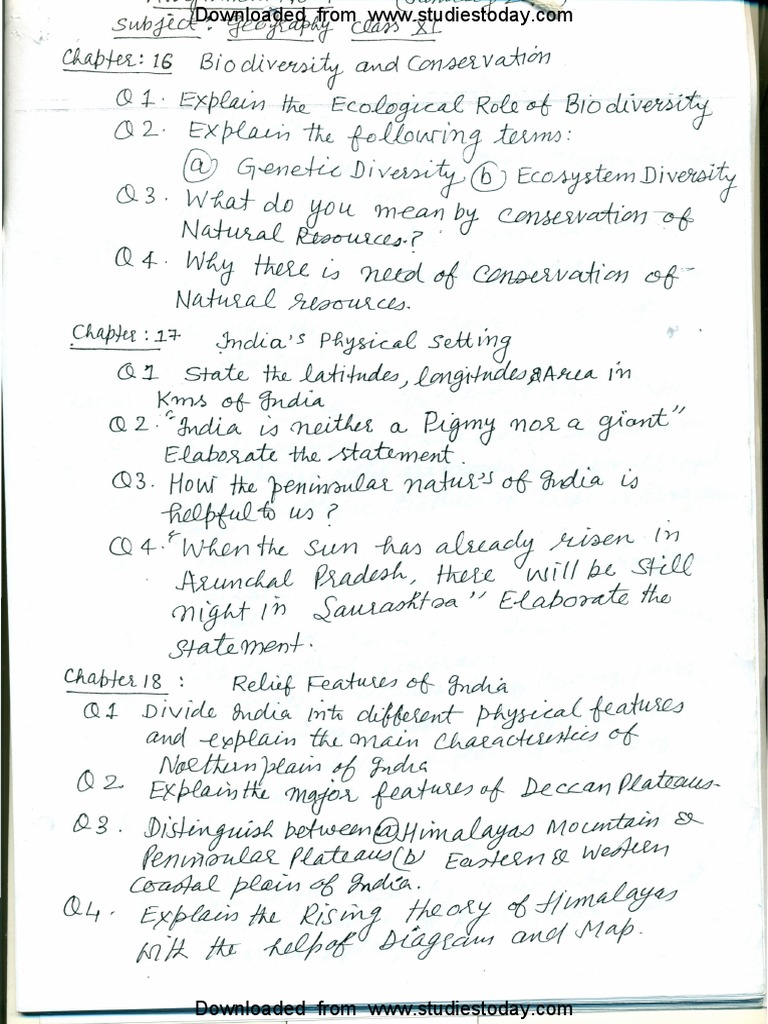 Downloaded from www.studiestoday.com
Subject: Geography Class XI
Chapter: 16 Biodiversity and Conservation
Q1. Explain the Ecological Role of Biodiversity
Q2. Explain the following terms:
(a) Genetic Diversity (b) Ecosystem Diversity
Q3. What do you mean by conservation of
Natural Resources?
Q4. Why there is need of conservation of
Natural resources.
Chapter: 17 India's Physical Setting
Q1 State the latitudes, longitudes & Area in
Kms of India
Q2. "India is neither a Pigmy nor a giant"
Elaborate the statement.
Q3. How the peninsular natur's of India is
helpful to us?
Q4. "When the sun has already risen in
Arunchal Pradesh, there will be still
night in Saurashtra" Elaborate the
statement.
Chapter 18: Relief Features of India
Q1 Divide India into different physical features
and explain the main characteristics of
Northern plain of India
Q2 Explain the major features of Deccan Plateaus.
Q3. Distinguish between (a) Himalayas Mountain &
Peninsular Plateaus (b) Eastern & Western
Coastal plain of India.
Q4. Explain the Rising theory of Himalayas
with the help of Diagram and Map.
Downloaded from www.studiestoday.com